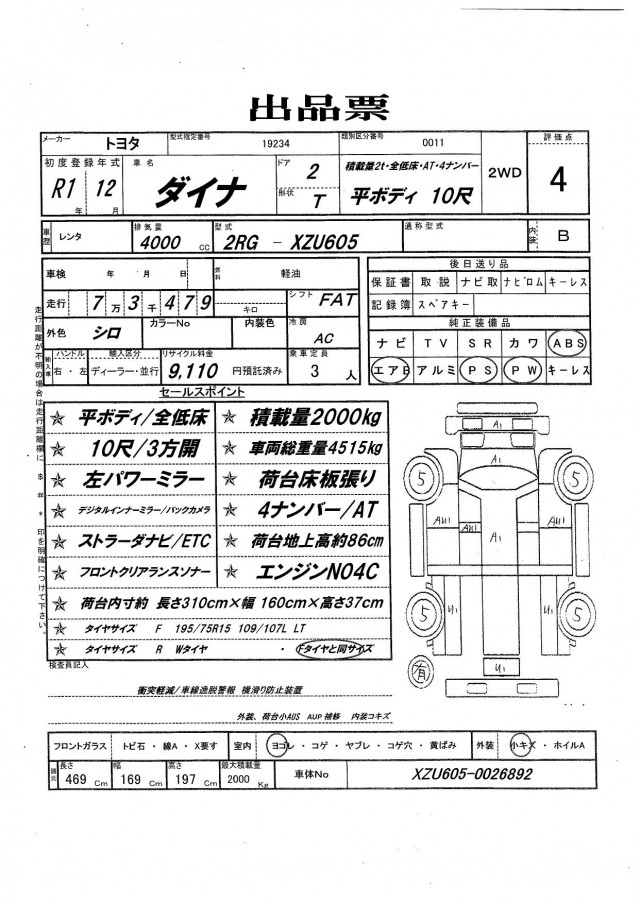 出品票
メーカー トヨタ 型式指定番号 19234 類別区分番号 0011 2WD 評価点 4
初度登録年式 R1年 12月 車名 ダイナ ドア 2 形状 T 積載量2t・全低床・AT・4ナンバー
平ボディ 10尺
車歴 レンタ 排気量 4000 CC 型式 2RG - XZU605 通称型式 内装 B
車検 年 月 日 燃料 軽油 後日送り品
保証書 取説 ナビ取 ナビロム キーレス
走行 7万3千479 キロ シフト FAT 記録簿 スペアキー
外色 シロ カラーNo 内装色 冷房 AC 純正装備品
ナビ TV SR カワ ABS
輸入車 ハンドル 右・左 輸入区分 ディーラー・並行 リサイクル料金 9,110 円預託済み 乗車定員 3 人 エアB アルミ PS PW キーレス
セールスポイント
☆ 平ボディ/全低床 ☆ 積載量2000kg
☆ 10尺/3方開 ☆ 車両総重量4515kg
☆ 左パワーミラー ☆ 荷台床板張り
☆ デジタルインナーミラー/バックカメラ ☆ 4ナンバー/AT
☆ ストラーダナビ/ETC ☆ 荷台地上高約86cm
☆ フロントクリアランスソナー ☆ エンジンN04C
☆ 荷台内寸約 長さ310cm×幅 160cm×高さ37cm
☆ タイヤサイズ F 195/75R15 109/107L LT
☆ タイヤサイズ R Wタイヤ ・ Fタイヤと同サイズ
走行距離が不明の場合は走行距離欄に $ # * 印を明確につけて下さい。
A1
5 A1 5
AU1 AU1 A1 AU1
5 U1 U1 5
有 U1
検査員記入
衝突軽減/車線逸脱警報 横滑り防止装置
外装、荷台小AUS AUP補修 内装コキズ
フロントガラス トビ石・線A・X要す 室内 ヨゴレ・コゲ・ヤブレ・コゲ穴・黄ばみ 外装 小キズ・ホイルA
諸元 長さ 469 Cm 幅 169 Cm 高さ 197 Cm 最大積載量 2000 Kg 車体No XZU605-0026892